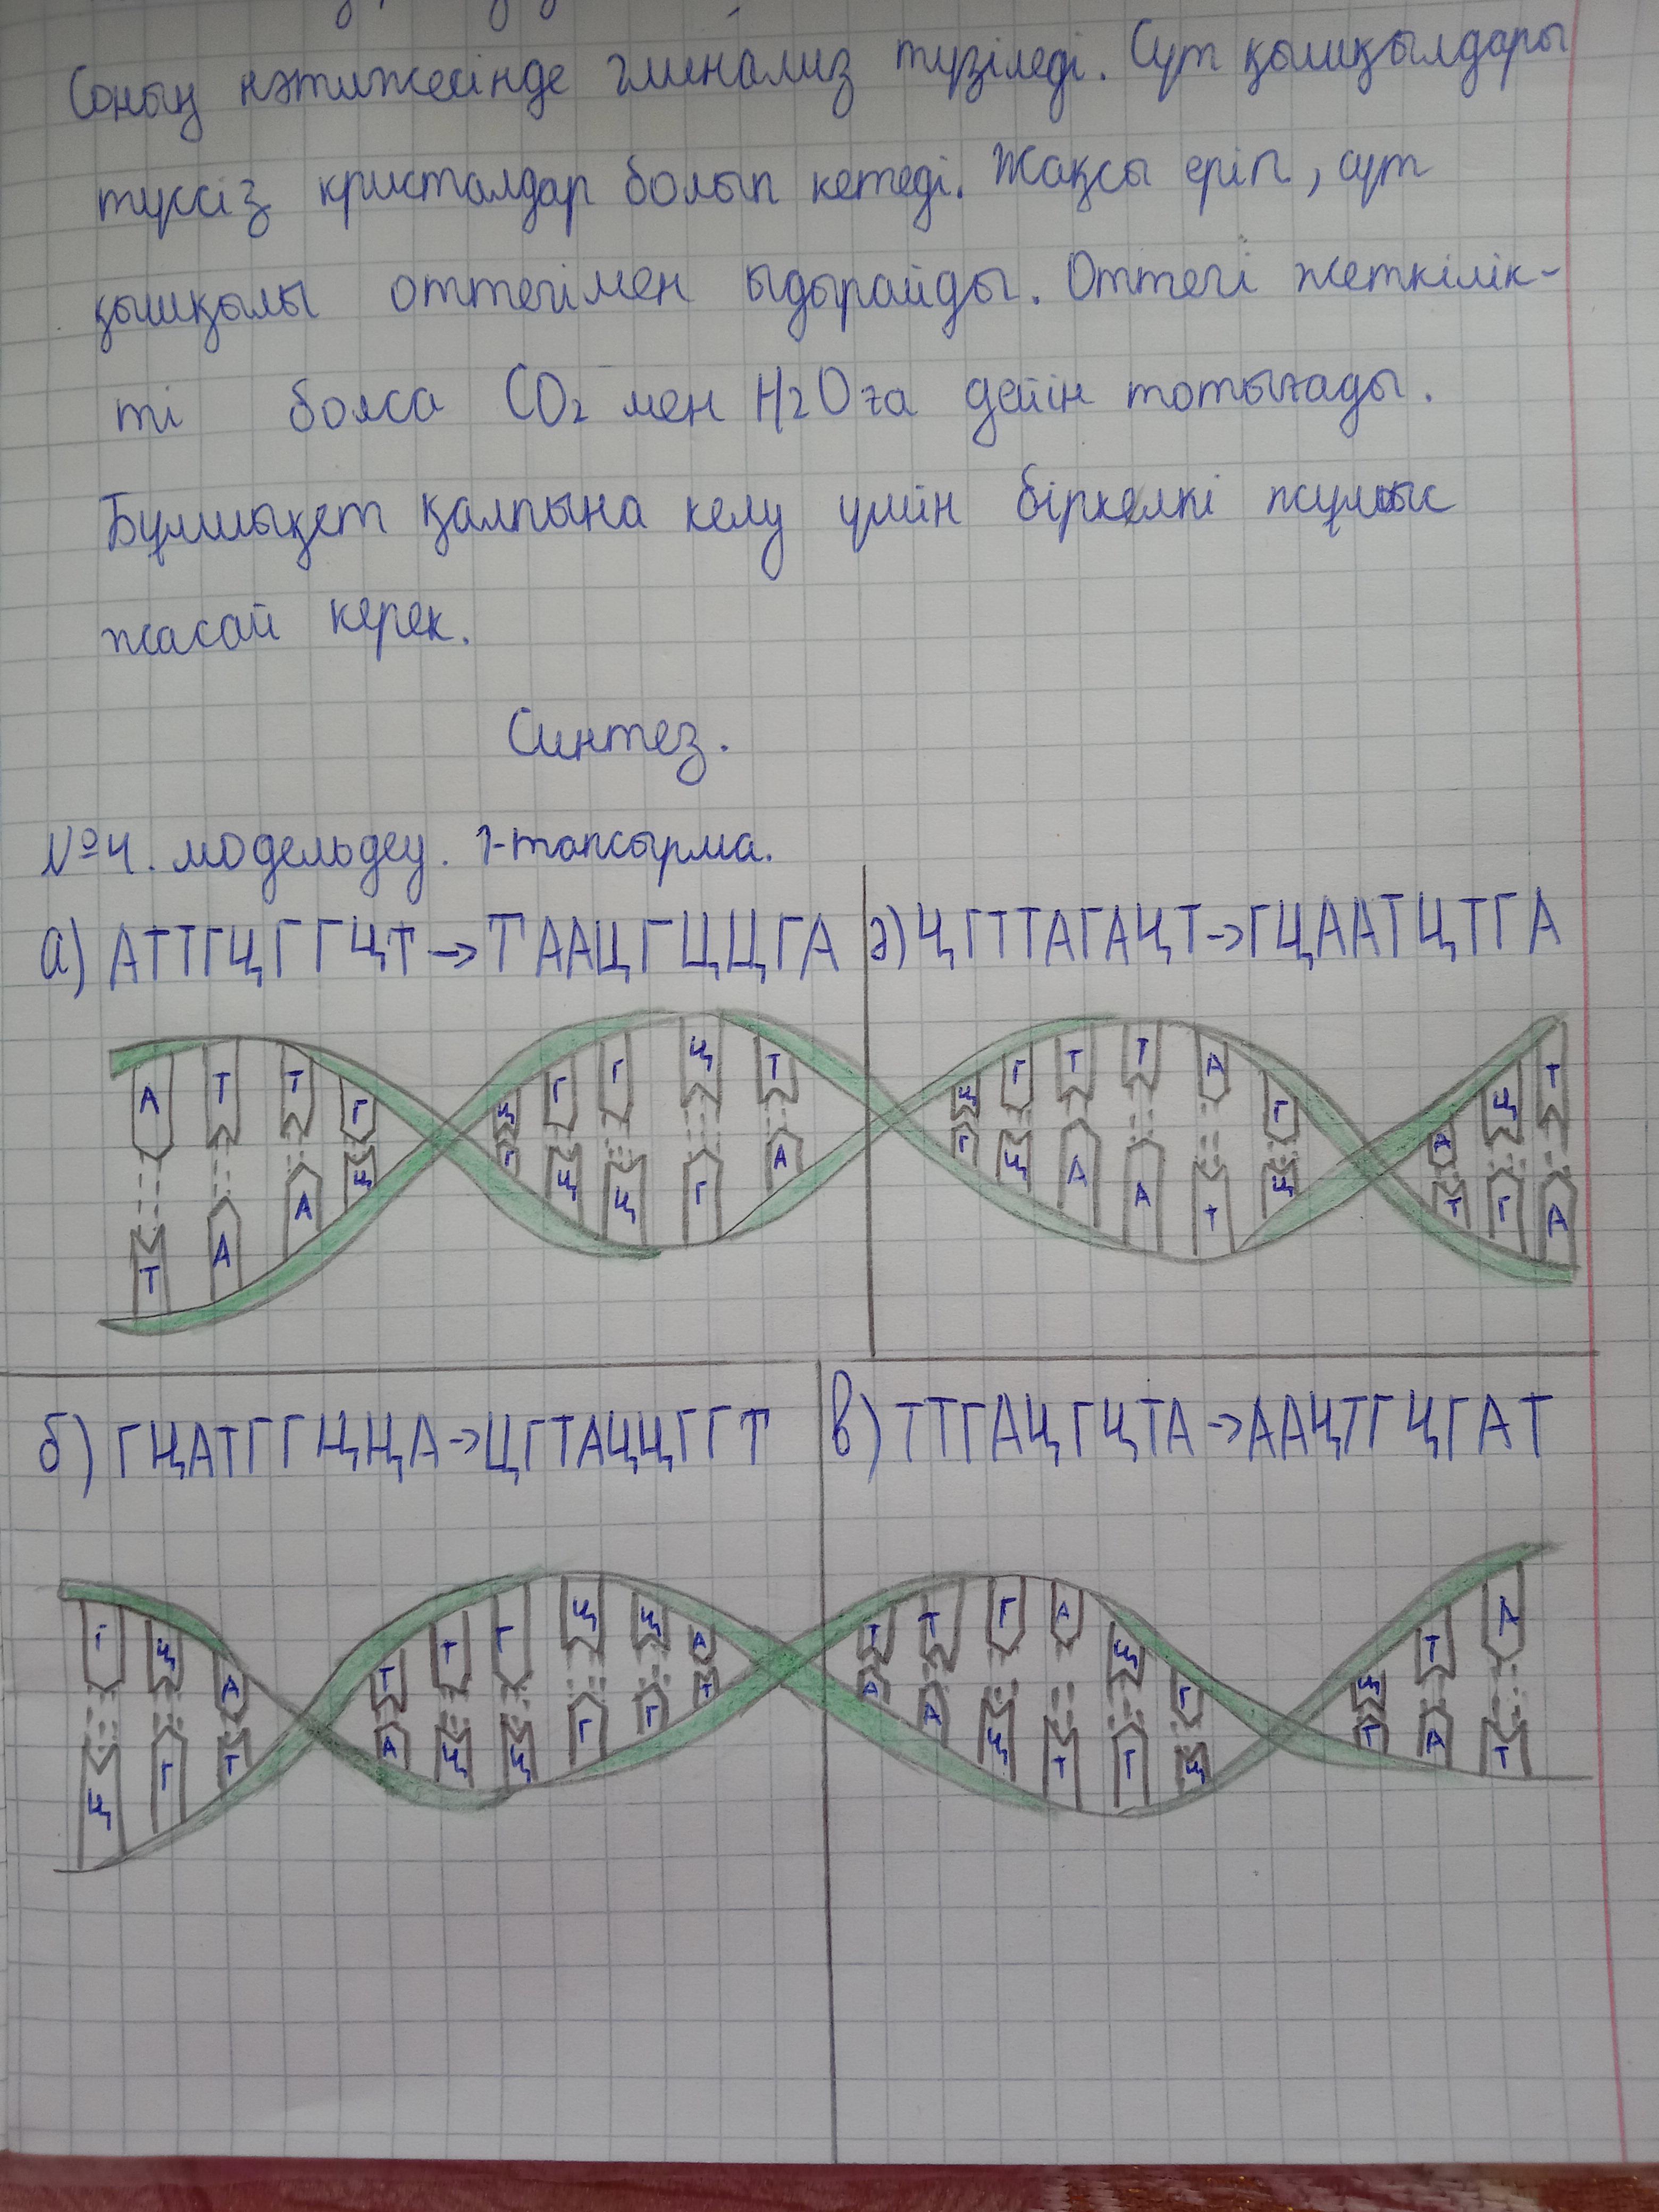 Соның нәтижесінде глиенализ түзіледі. Сүт қышқылдары
түссіз кристалдар болып кетеді. Жақсы еріп, сүт
қышқылы оттегімен ыдырайды. Оттегі жеткілік-
ті болса CO2 мен H2O ға дейін тотығады.
Бұлшықет қалпына келу үшін біркелкі жұмыс
жасай керек.
Синтез.
№4. модельдеу. 1-тапсырма.
а) АТТГЦГГЦТ → ТААЦГЦЦГА ә) ЦГТТАГАЦТ → ГЦААТЦТГА
А Т Т Г Ц Г Г Ц Т Ц Г Т Т А Г А Ц Т
Т А А Ц Г Ц Ц Г А Г Ц А А Т Ц Т Г А
б) ГЦАТГГЦЦА → ЦГТАЦЦГГТ в) ТТГАЦГЦТА → ААЦТГЦГАТ
Г Ц А Т Т Г Ц Ц А Т Т Г А Ц Г Ц Т А
Ц Г Т А Ц Ц Г Г Т А А Ц Т Г Ц Г А Т